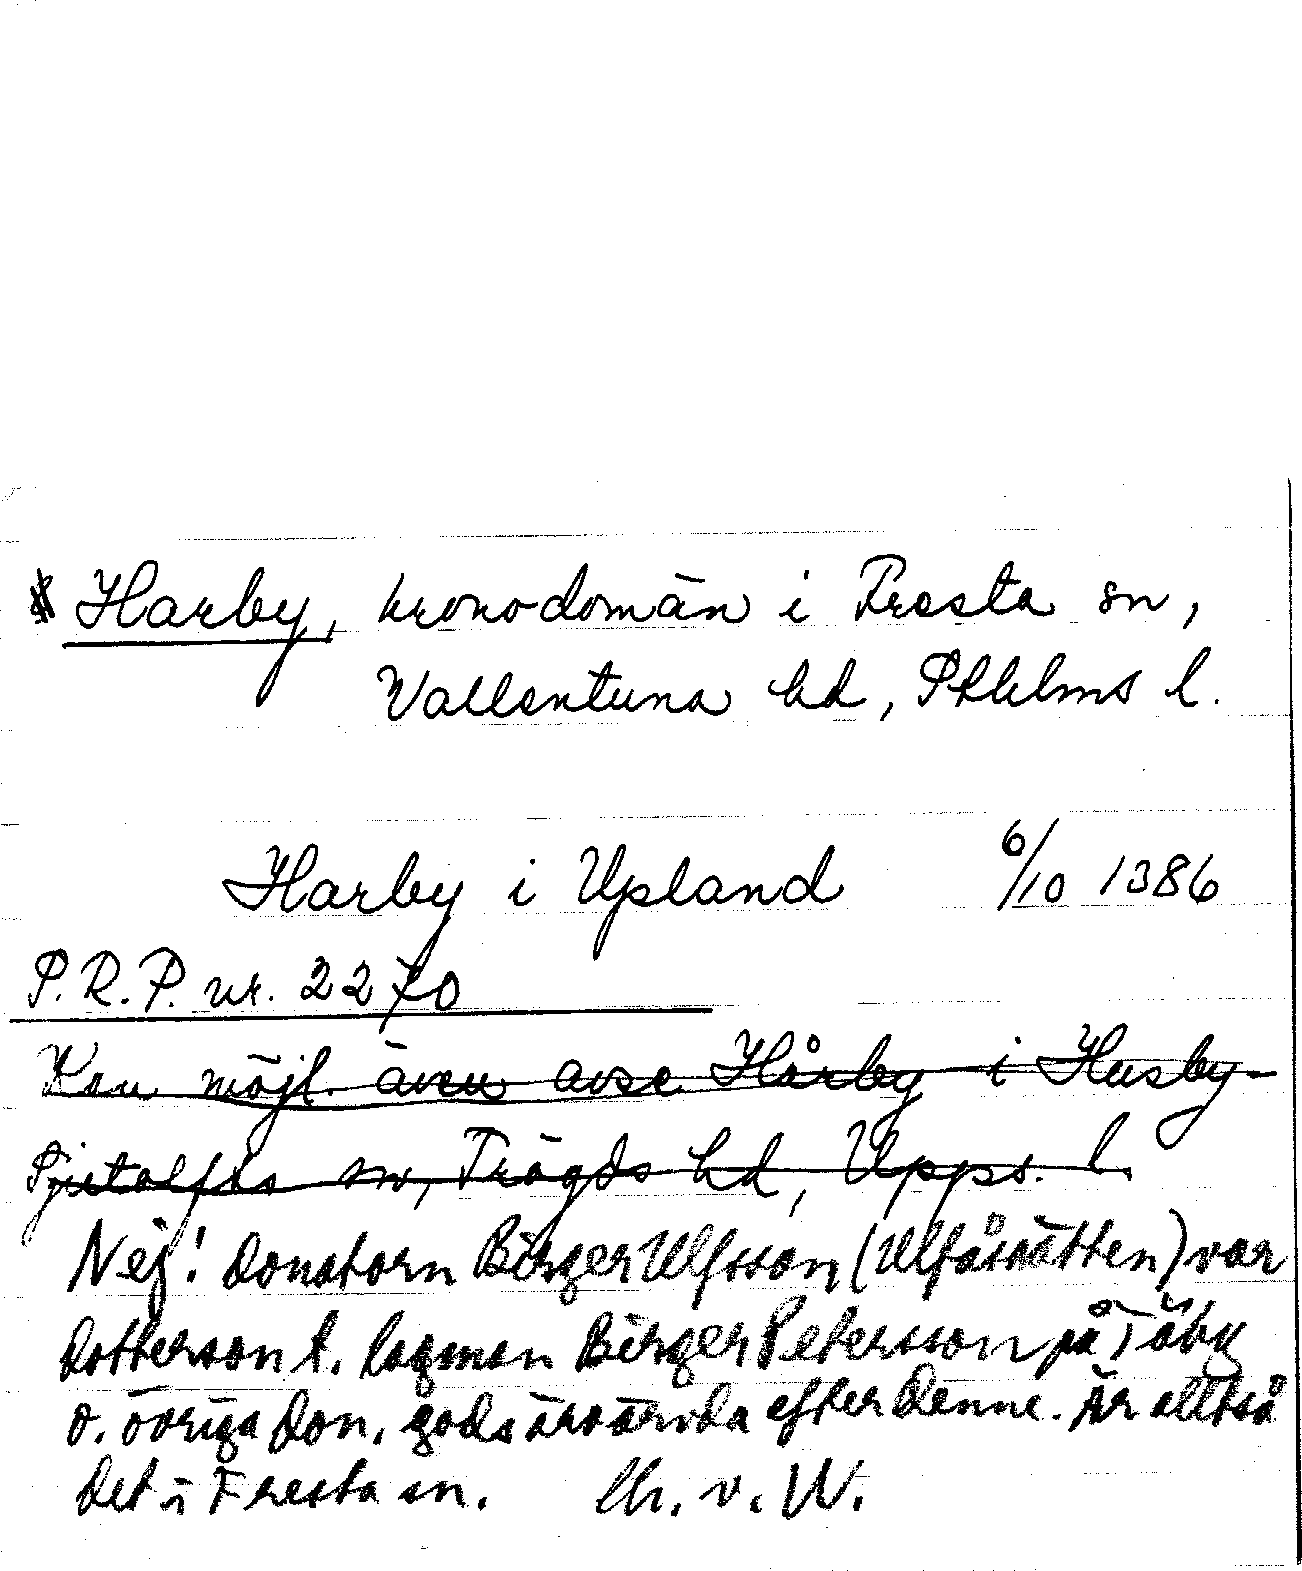 Harby, kronodomän i Fresta sn,
Vallentuna hd, Sthlms l.
Harby i Upland 6/10 1386
P.R.P. nr. 2270
Kan möjl. även avse Hårby i Husby-
Sjutolfts sn, Trögds hd, Upps. l.
Nej! Donatorn Birger Ulfsson (Ulfåsaätten) var
dotterson t. lagman Birger Petersson på Täby
o. övriga don. gods är ärvda efter denne. Är alltså
det i Fresta sn. Ch. v. W.